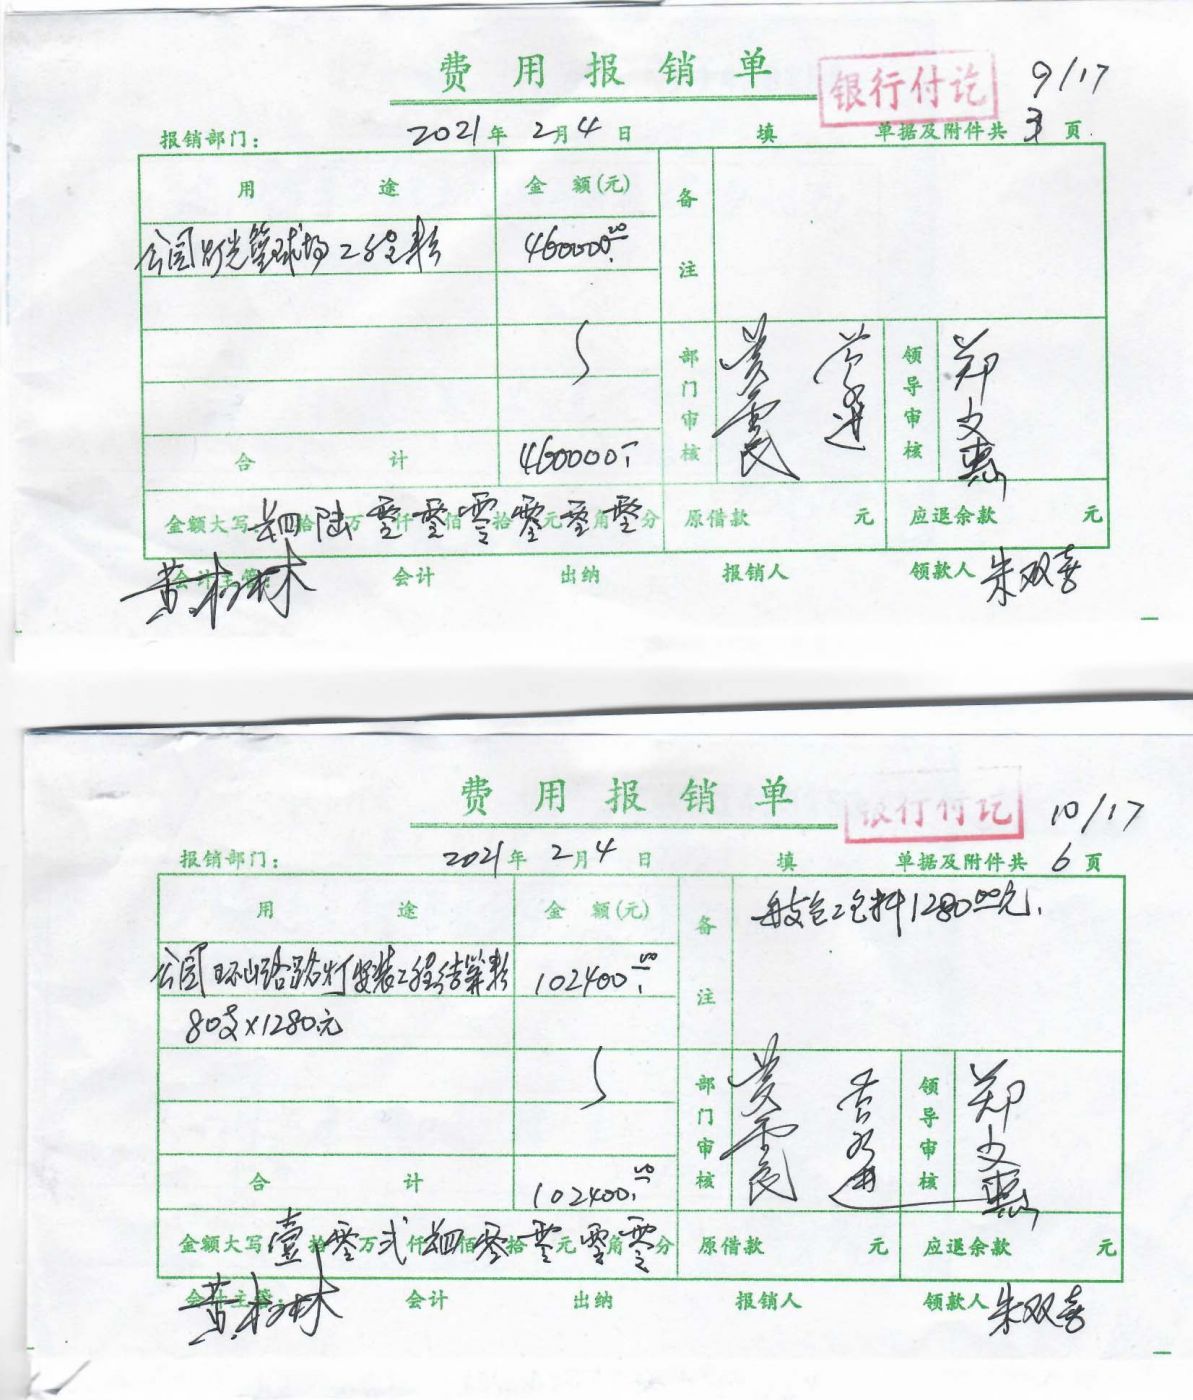 费用报销单
银行付讫
9/17
报销部门：
2021年2月4日
填
单据及附件共3页
用途
金额(元)
备注
公园灯光篮球场工程款
460000.00
部门审核
领导审核
郑文惠
合计
460000.-
金额大写 肆拾陆万零仟零佰零拾零元零角零分
原借款 元
应退余款 元
会计主管：
黄树林
会计
出纳
报销人
领款人 朱双喜
费用报销单
银行付讫
10/17
报销部门：
2021年2月4日
填
单据及附件共6页
用途
金额(元)
备注
每支包工包料1280.00元.
公园环山路路灯安装工程结算款
102400.00
80支×1280元
部门审核
领导审核
郑文惠
合计
102400.00
金额大写 壹拾零万贰仟肆佰零拾零元零角零分
原借款 元
应退余款 元
会计主管：
黄树林
会计
出纳
报销人
领款人 朱双喜